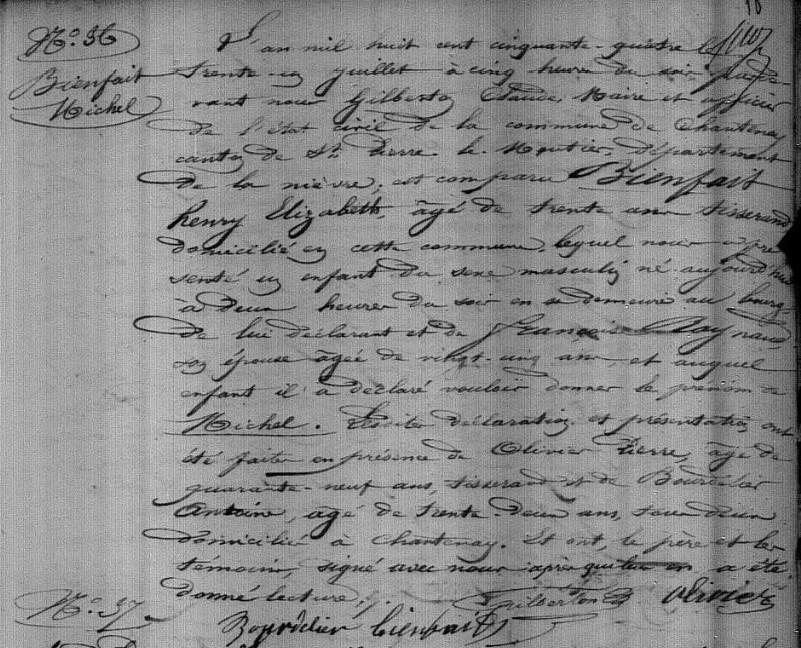 N.º 36
Bienfait
Michel
L'an mil huit cent cinquante-quatre le
trente-un Juillet à cinq heures du soir pardevant
nous Gilberton Claude, Maire et officier
de l'état civil de la commune de Chantenay
canton de St Pierre-le-Moutier, Département
de la nièvre, est comparu Bienfait
henry Elizabeth, âgé de trente ans tisserand
domicilié en cette commune, lequel nous a pré
senté un enfant du sexe masculin né aujourd'hui
à deux heures du soir en sa demeure au bourg
de lui déclarant et de Françoise Raynaud
son épouse âgée de vingt-cinq ans, et auquel
enfant il a déclaré vouloir donner le prénom de
Michel. Lesdites déclaration et présentation ont
été faites en présence de Olivier Pierre, âgé de
quarante-neuf ans, tisserand et de Bourdelier
Antoine, âgé de trente-deux ans, tous deux
domiciliés à Chantenay. Et ont, le père et les
témoins, signé avec nous après que lecture en a été
donné lecture.
Gilberton Olivier
Bourdelier bienfait
N.º 37